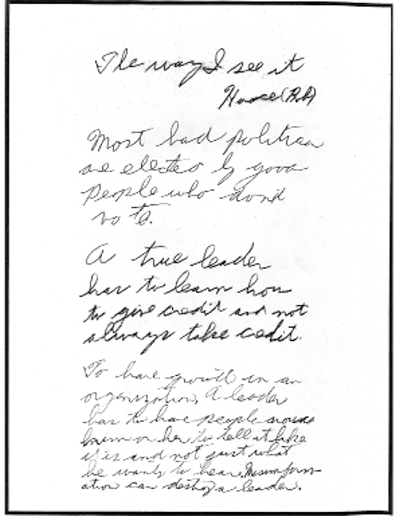 The way I see it
Most bad politica
are elected by good
People who dond
vote.
A true leader
has to learn how
to give credit and not
always take credit.
To have growth in an
organization, A leader
has to have people around
him or her to tell it like
it is and not just what
he wants to hear. Misinform-
ation can destroy a leader.